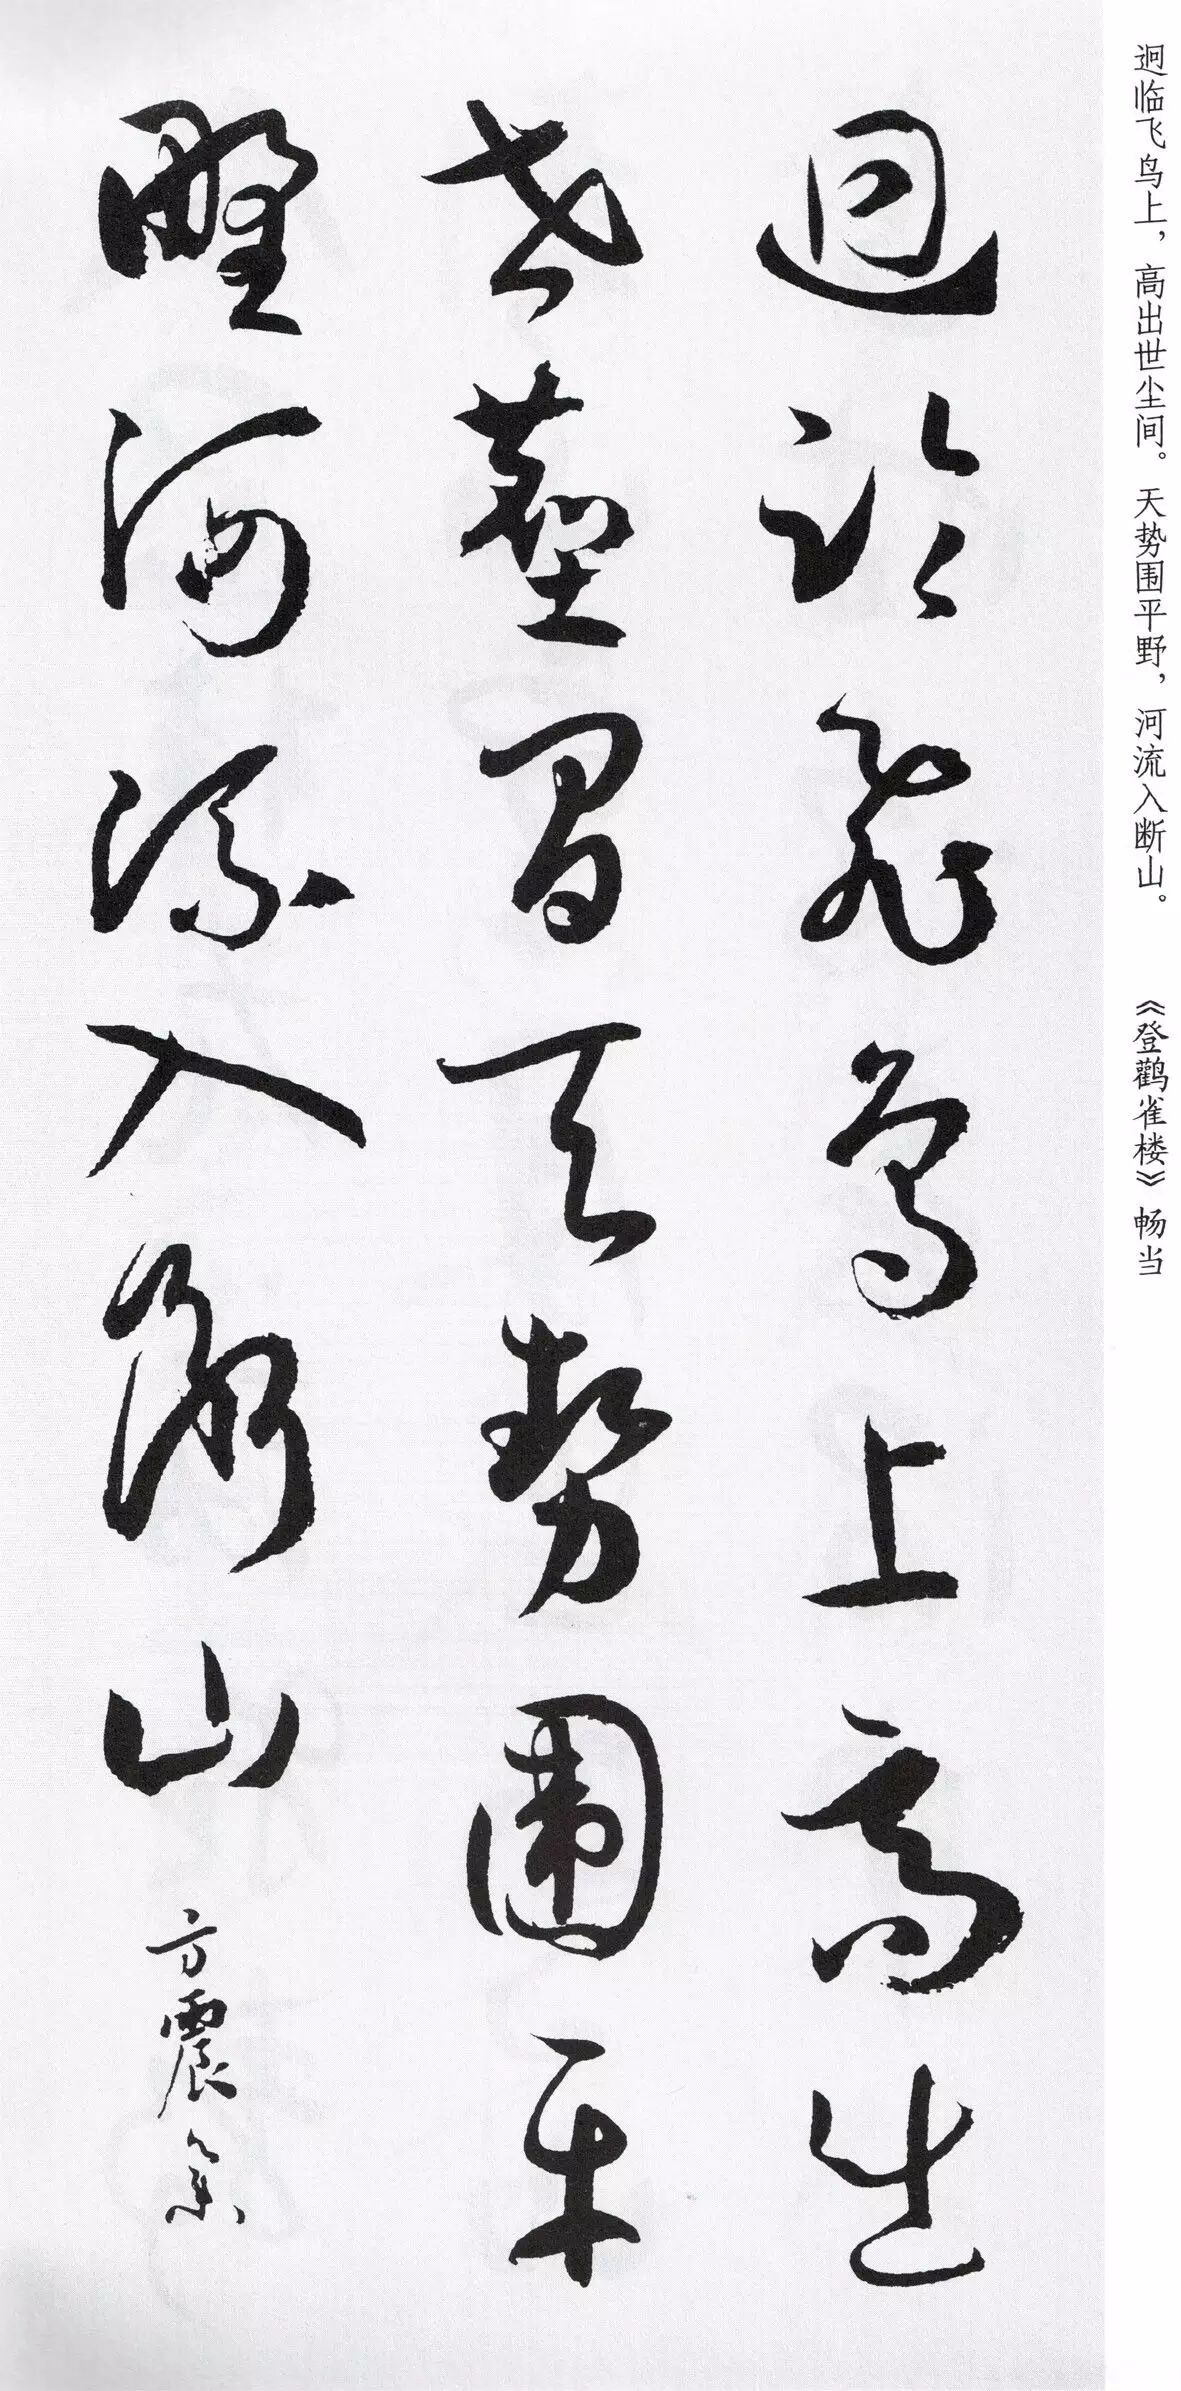 迥临飞鸟上，高出世尘间。天势围平野，河流入断山。 《登鹳雀楼》 畅当
迥临飞鸟上高出
世尘间天势围平
野河流入断山
方震